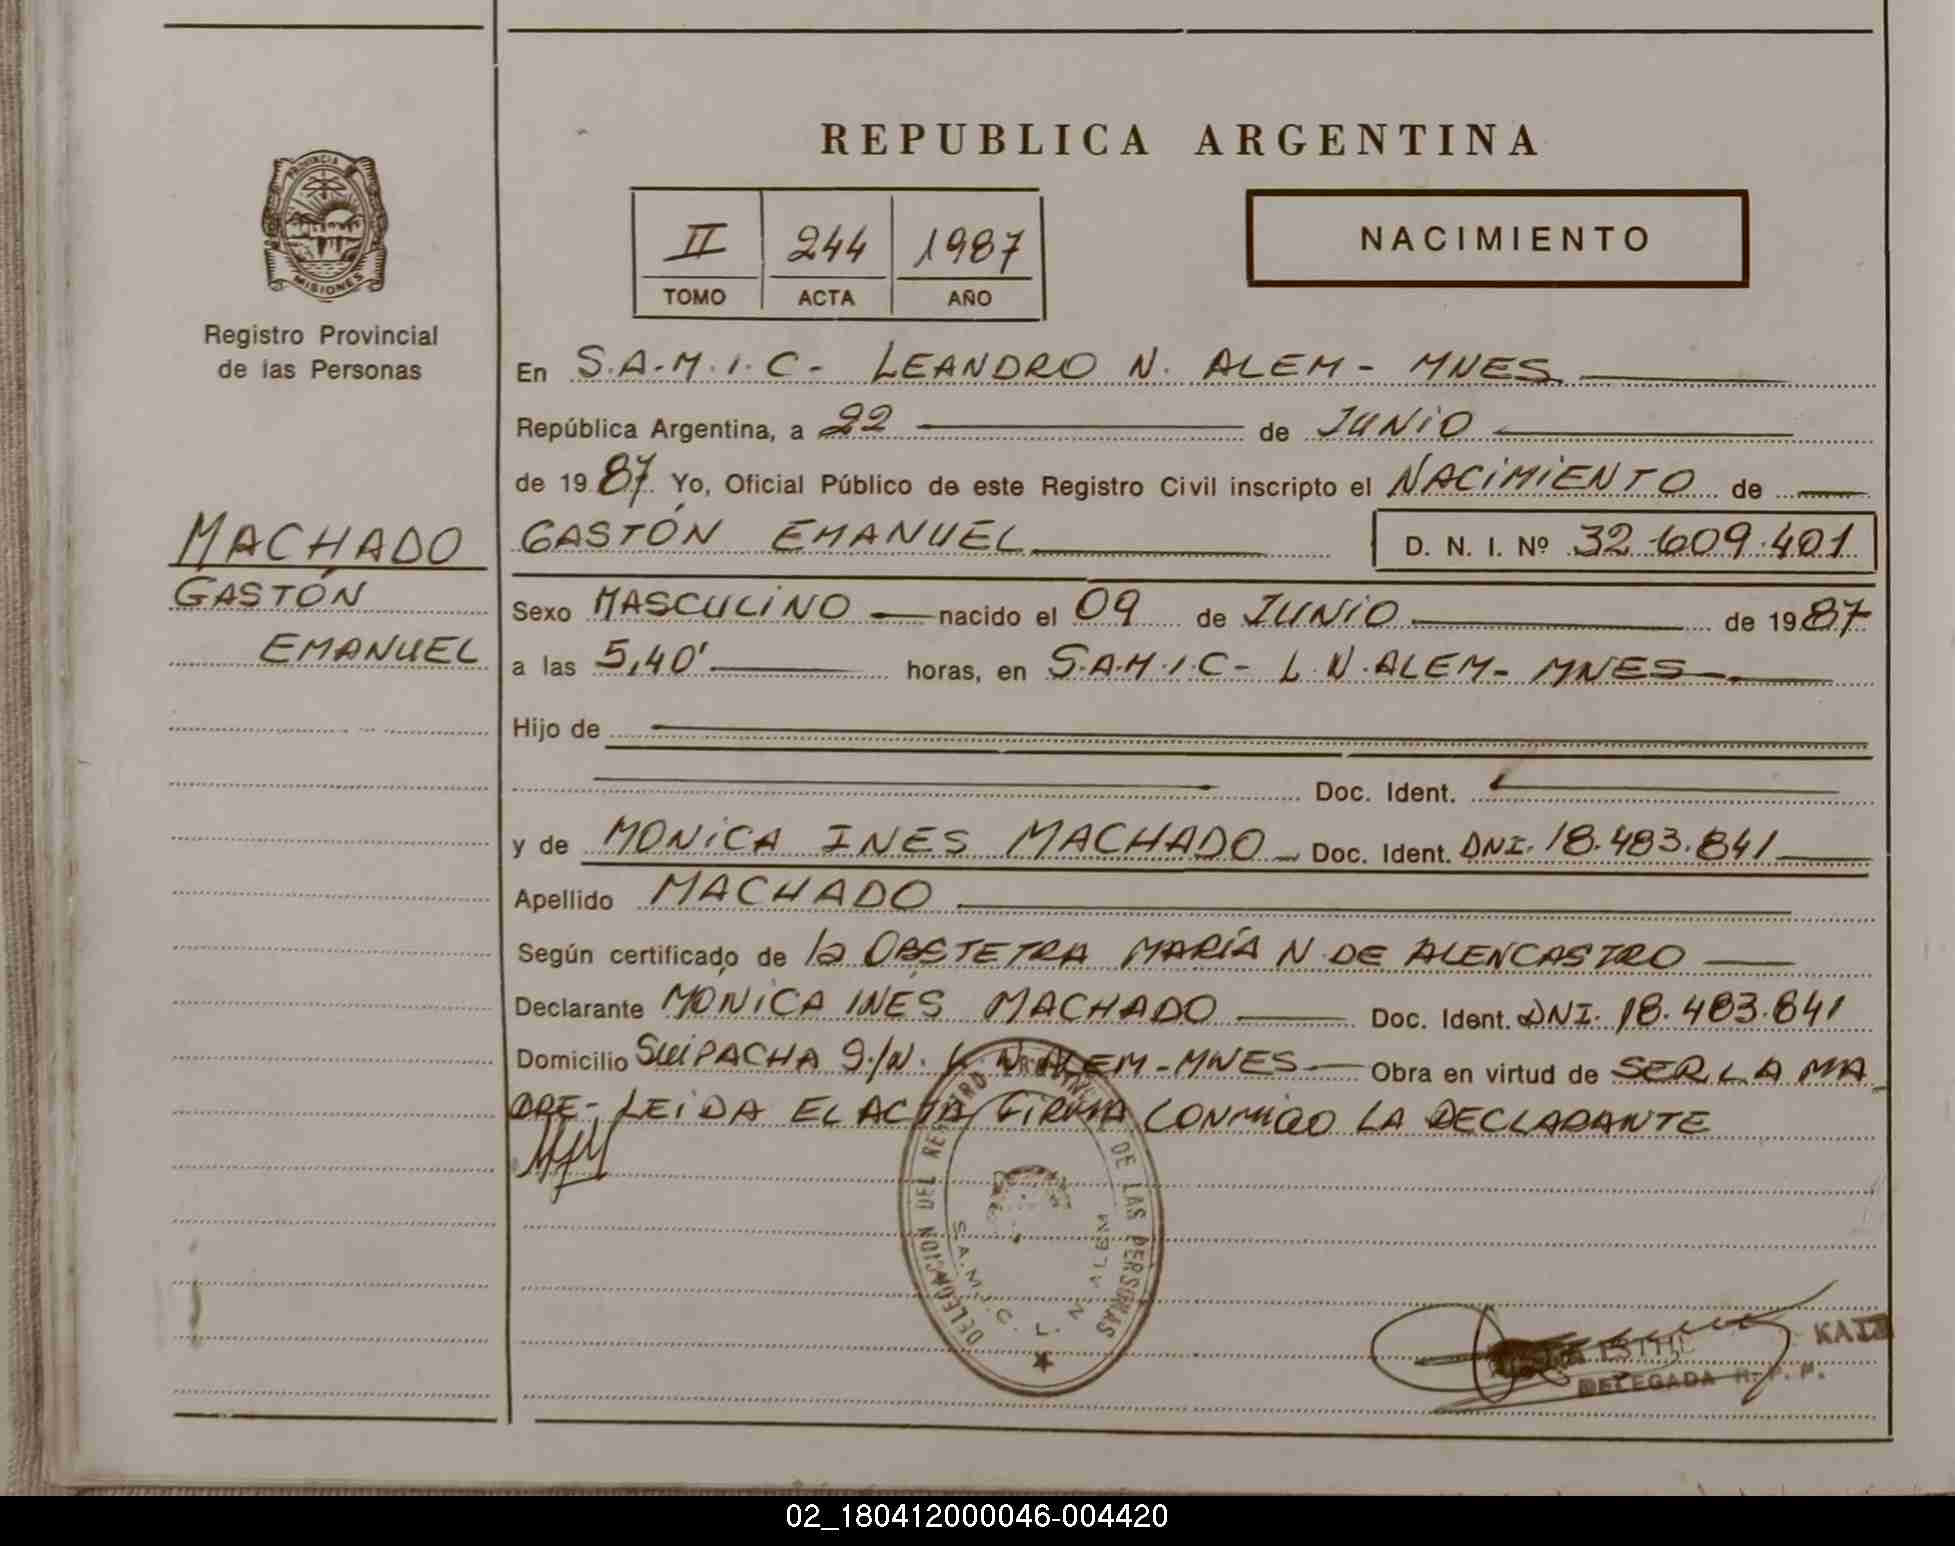 REPUBLICA ARGENTINA
PROVINCIA
MISIONES
Registro Provincial
de las Personas
II 244 1987
TOMO ACTA AÑO
NACIMIENTO
En S.A.M.I.C- LEANDRO N. ALEM- MNES
República Argentina, a 22 de JUNIO
de 1987. Yo, Oficial Público de este Registro Civil inscripto el NACIMIENTO de
MACHADO
GASTÓN
EMANUEL
GASTÓN EMANUEL D. N. I. Nº 32.609.401
Sexo MASCULINO nacido el 09 de JUNIO de 1987
a las 5,40' horas, en S.A.M.I.C- L.N.ALEM- MNES
Hijo de
Doc. Ident.
y de MONICA INES MACHADO Doc. Ident. DNI. 18.483.841
Apellido MACHADO
Según certificado de la OBSTETRA MARÍA N DE ALENCASTRO
Declarante MONICA INES MACHADO Doc. Ident. DNI. 18.483.841
Domicilio SUIPACHA S/N. L. N. ALEM-MNES Obra en virtud de SER LA MA
DRE- LEIDA EL ACTA FIRMA CONMIGO LA DECLARANTE
DELEGACION DEL REGISTRO PROVINCIAL DE LAS PERSONAS
S.A.M.I.C. L. N. ALEM
DELEGADA R.P.P.
02_180412000046-004420